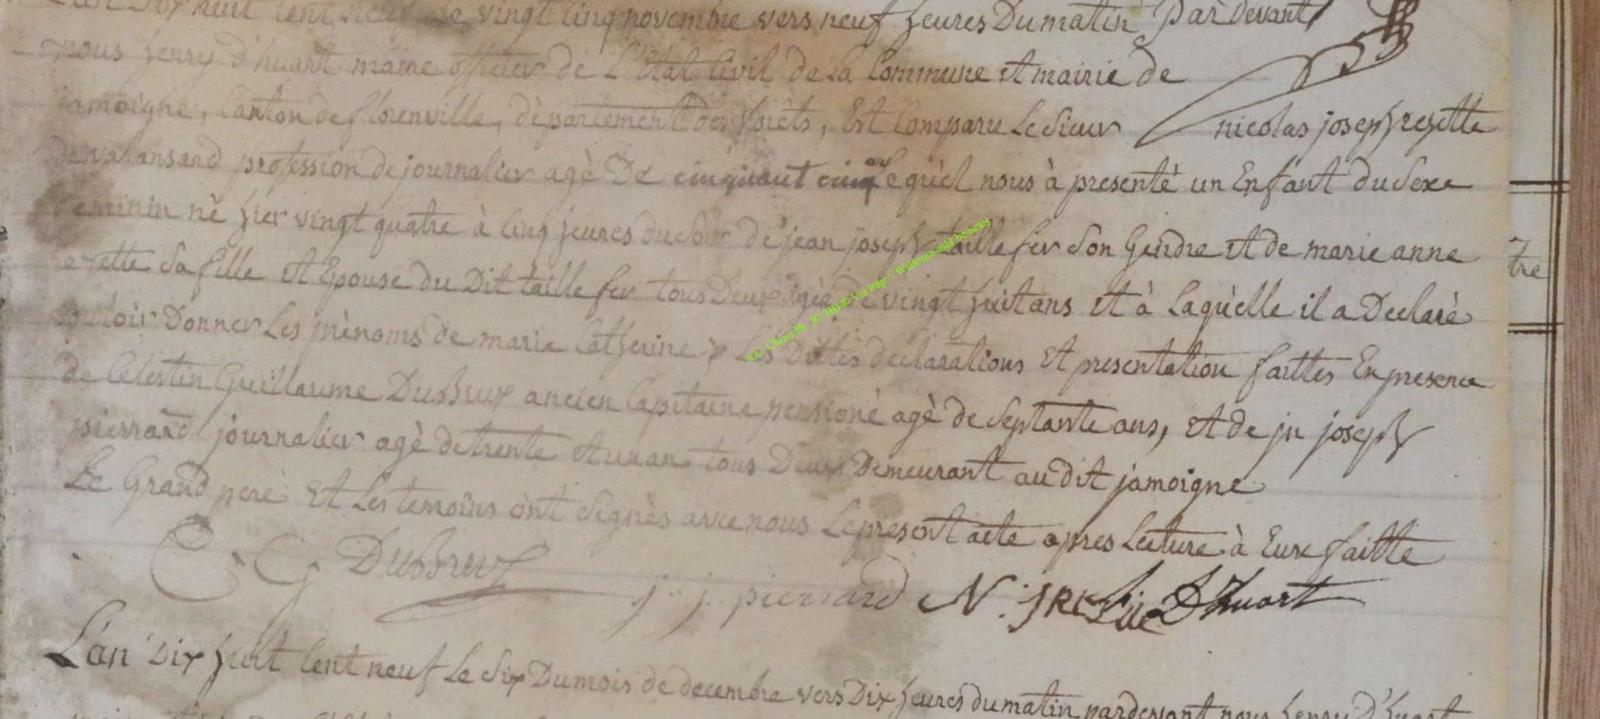 L'an Dix huit Cent neuf le vingt Cinq novembre vers neuf heures Du matin Par devant
nous henry d'huart maire officier de L'Etat Civil de La Commune et mairie de
jamoigne, Canton de florenville, département des forêts, Est Comparu Le Sieur nicolas joseph resette
de valansard profession de journalier agè De cinquant cinq ans Lequ'el nous à presenté un Enfant du Sexe
feminin nè hier vingt quatre à Cinq heures du Soir de jean joseph taille fer Son Gendre Et de marie anne
resette Sa fille Et Epouse du Dit taille fer tous Deux agès De vingt huit ans Et à Laquèlle il a Declarè
vouloir Donner Les prènoms de marie Catherine, Les Dittes declarations Et presentation faittes En presence
de Celestin Guillaume Dubreux ancien Capitaine pensionè agè de Septante ans, Et de jn joseph
pierrard journalier agè de trente Et un an tous Deux Demeurant au dit jamoigne
Le Grand pere Et Les temoins ont Signès avec nous Le present acte apres Lecture à Eux faitte
C G Dubreux j. j. pierrard N. J Resette D'huart
L'an Dix huit Cent neuf Le Six Du mois de decembre vers Dix heures du matin pardevant nous henry D'huart
tre